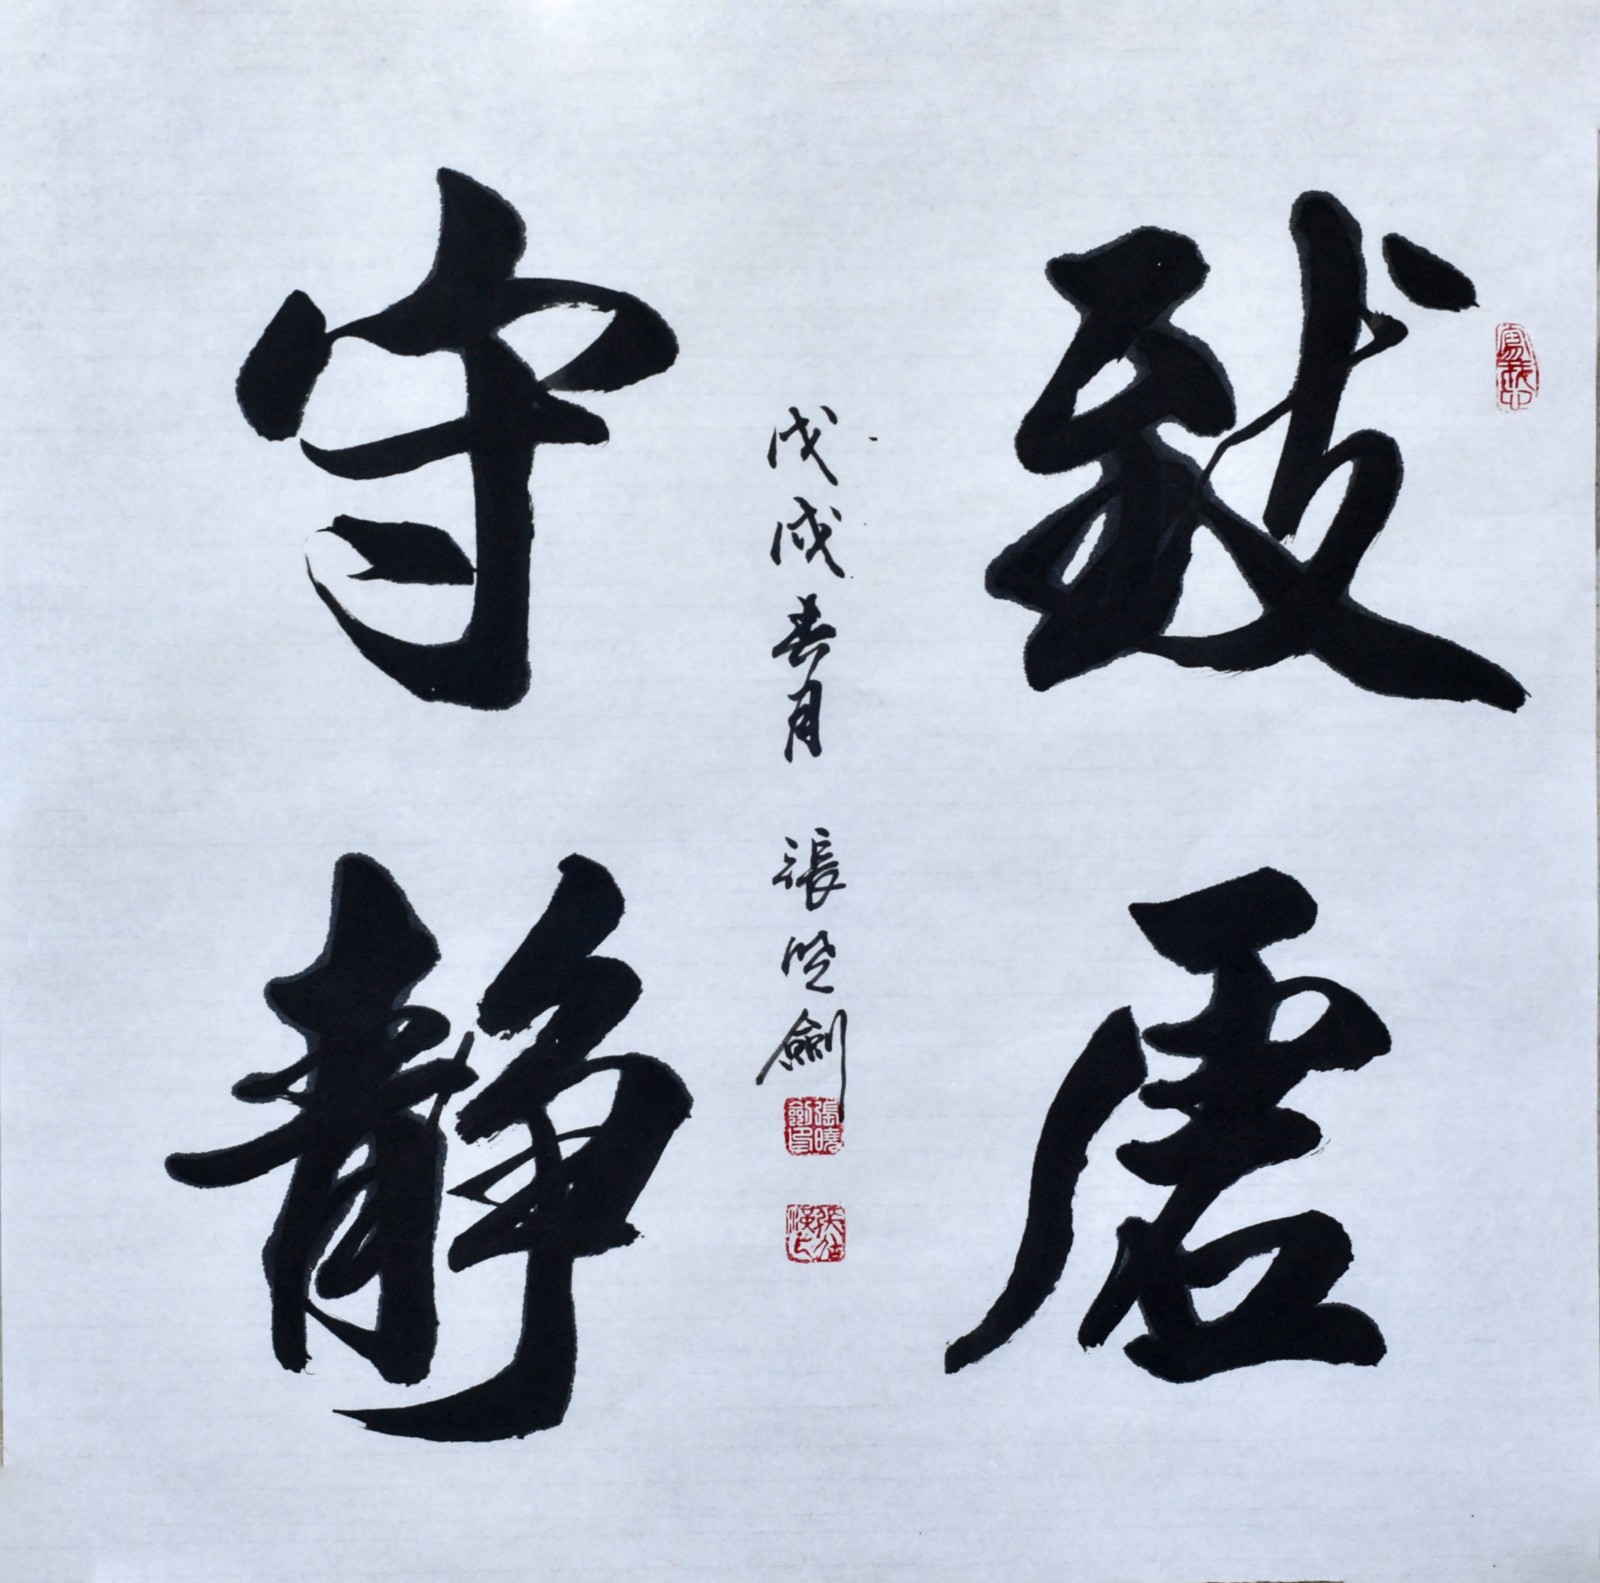 致虚
戊戌春月 張曉劍
守静
張曉劍印